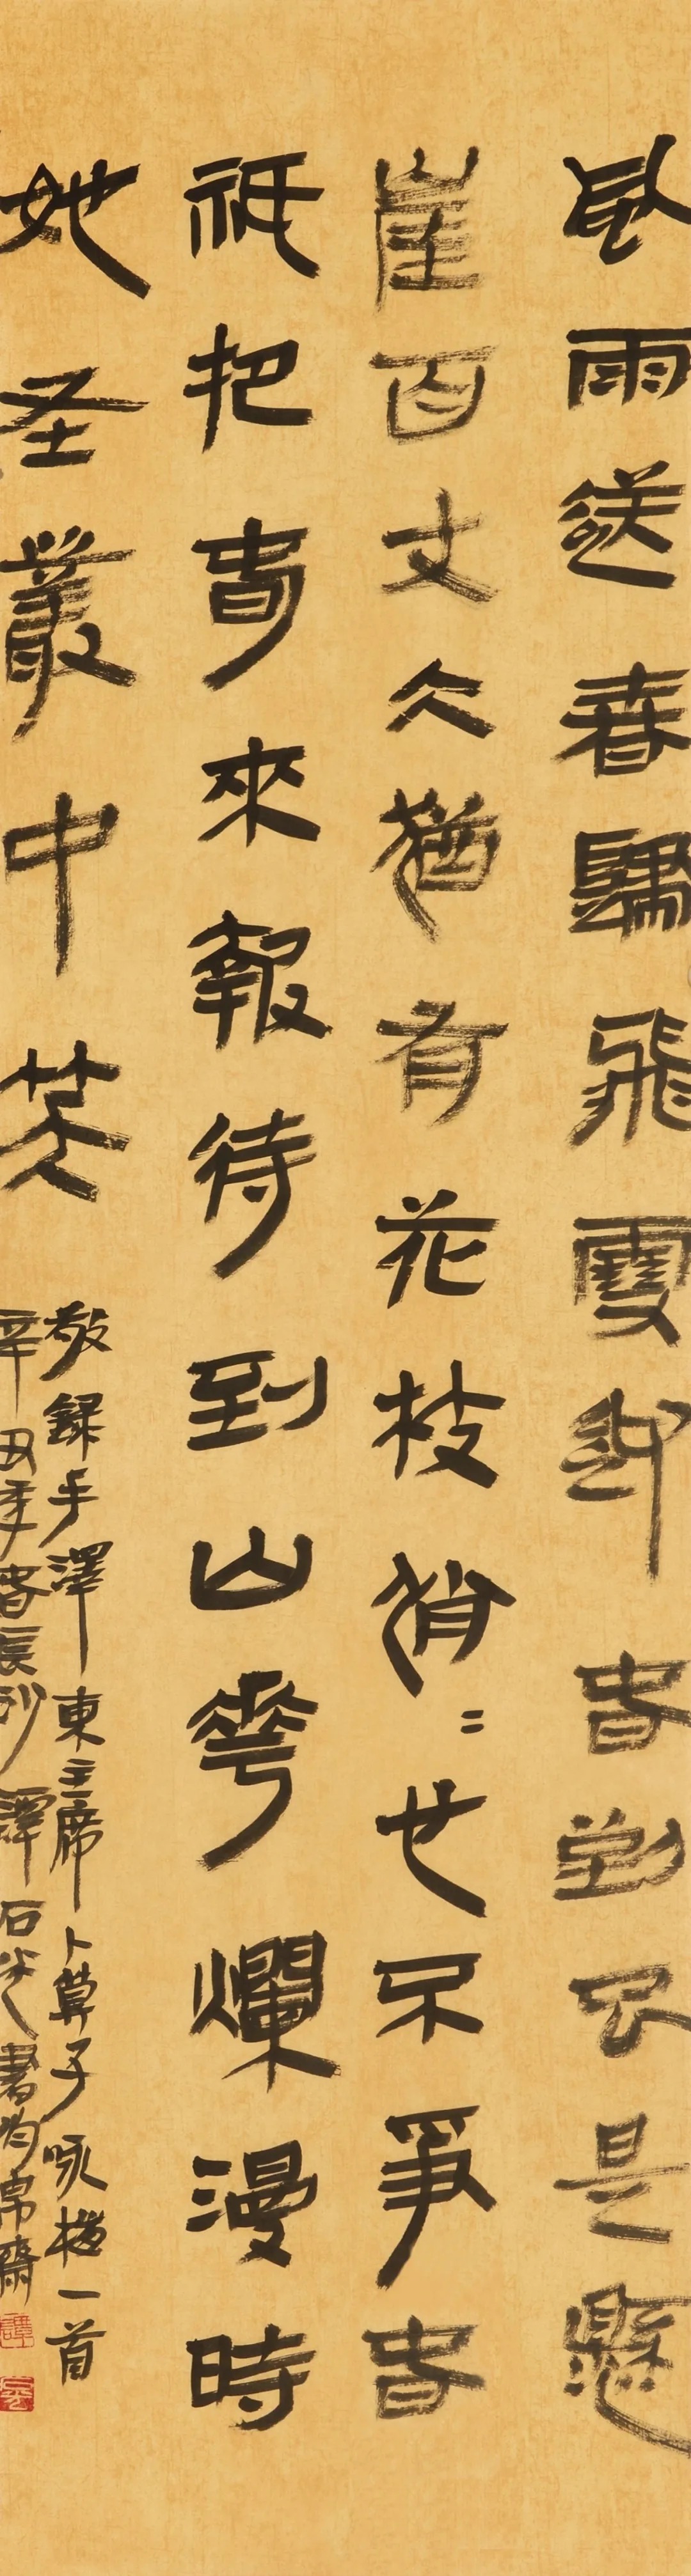 風雨送春歸飛雪迎春到已是懸
崖百丈冰猶有花枝俏=也不爭春
祇把春來報待到山華爛漫時
她在叢中笑
敬錄毛澤東主席卜算子咏梅一首
辛丑年春長沙譚石光書帛齋
譚